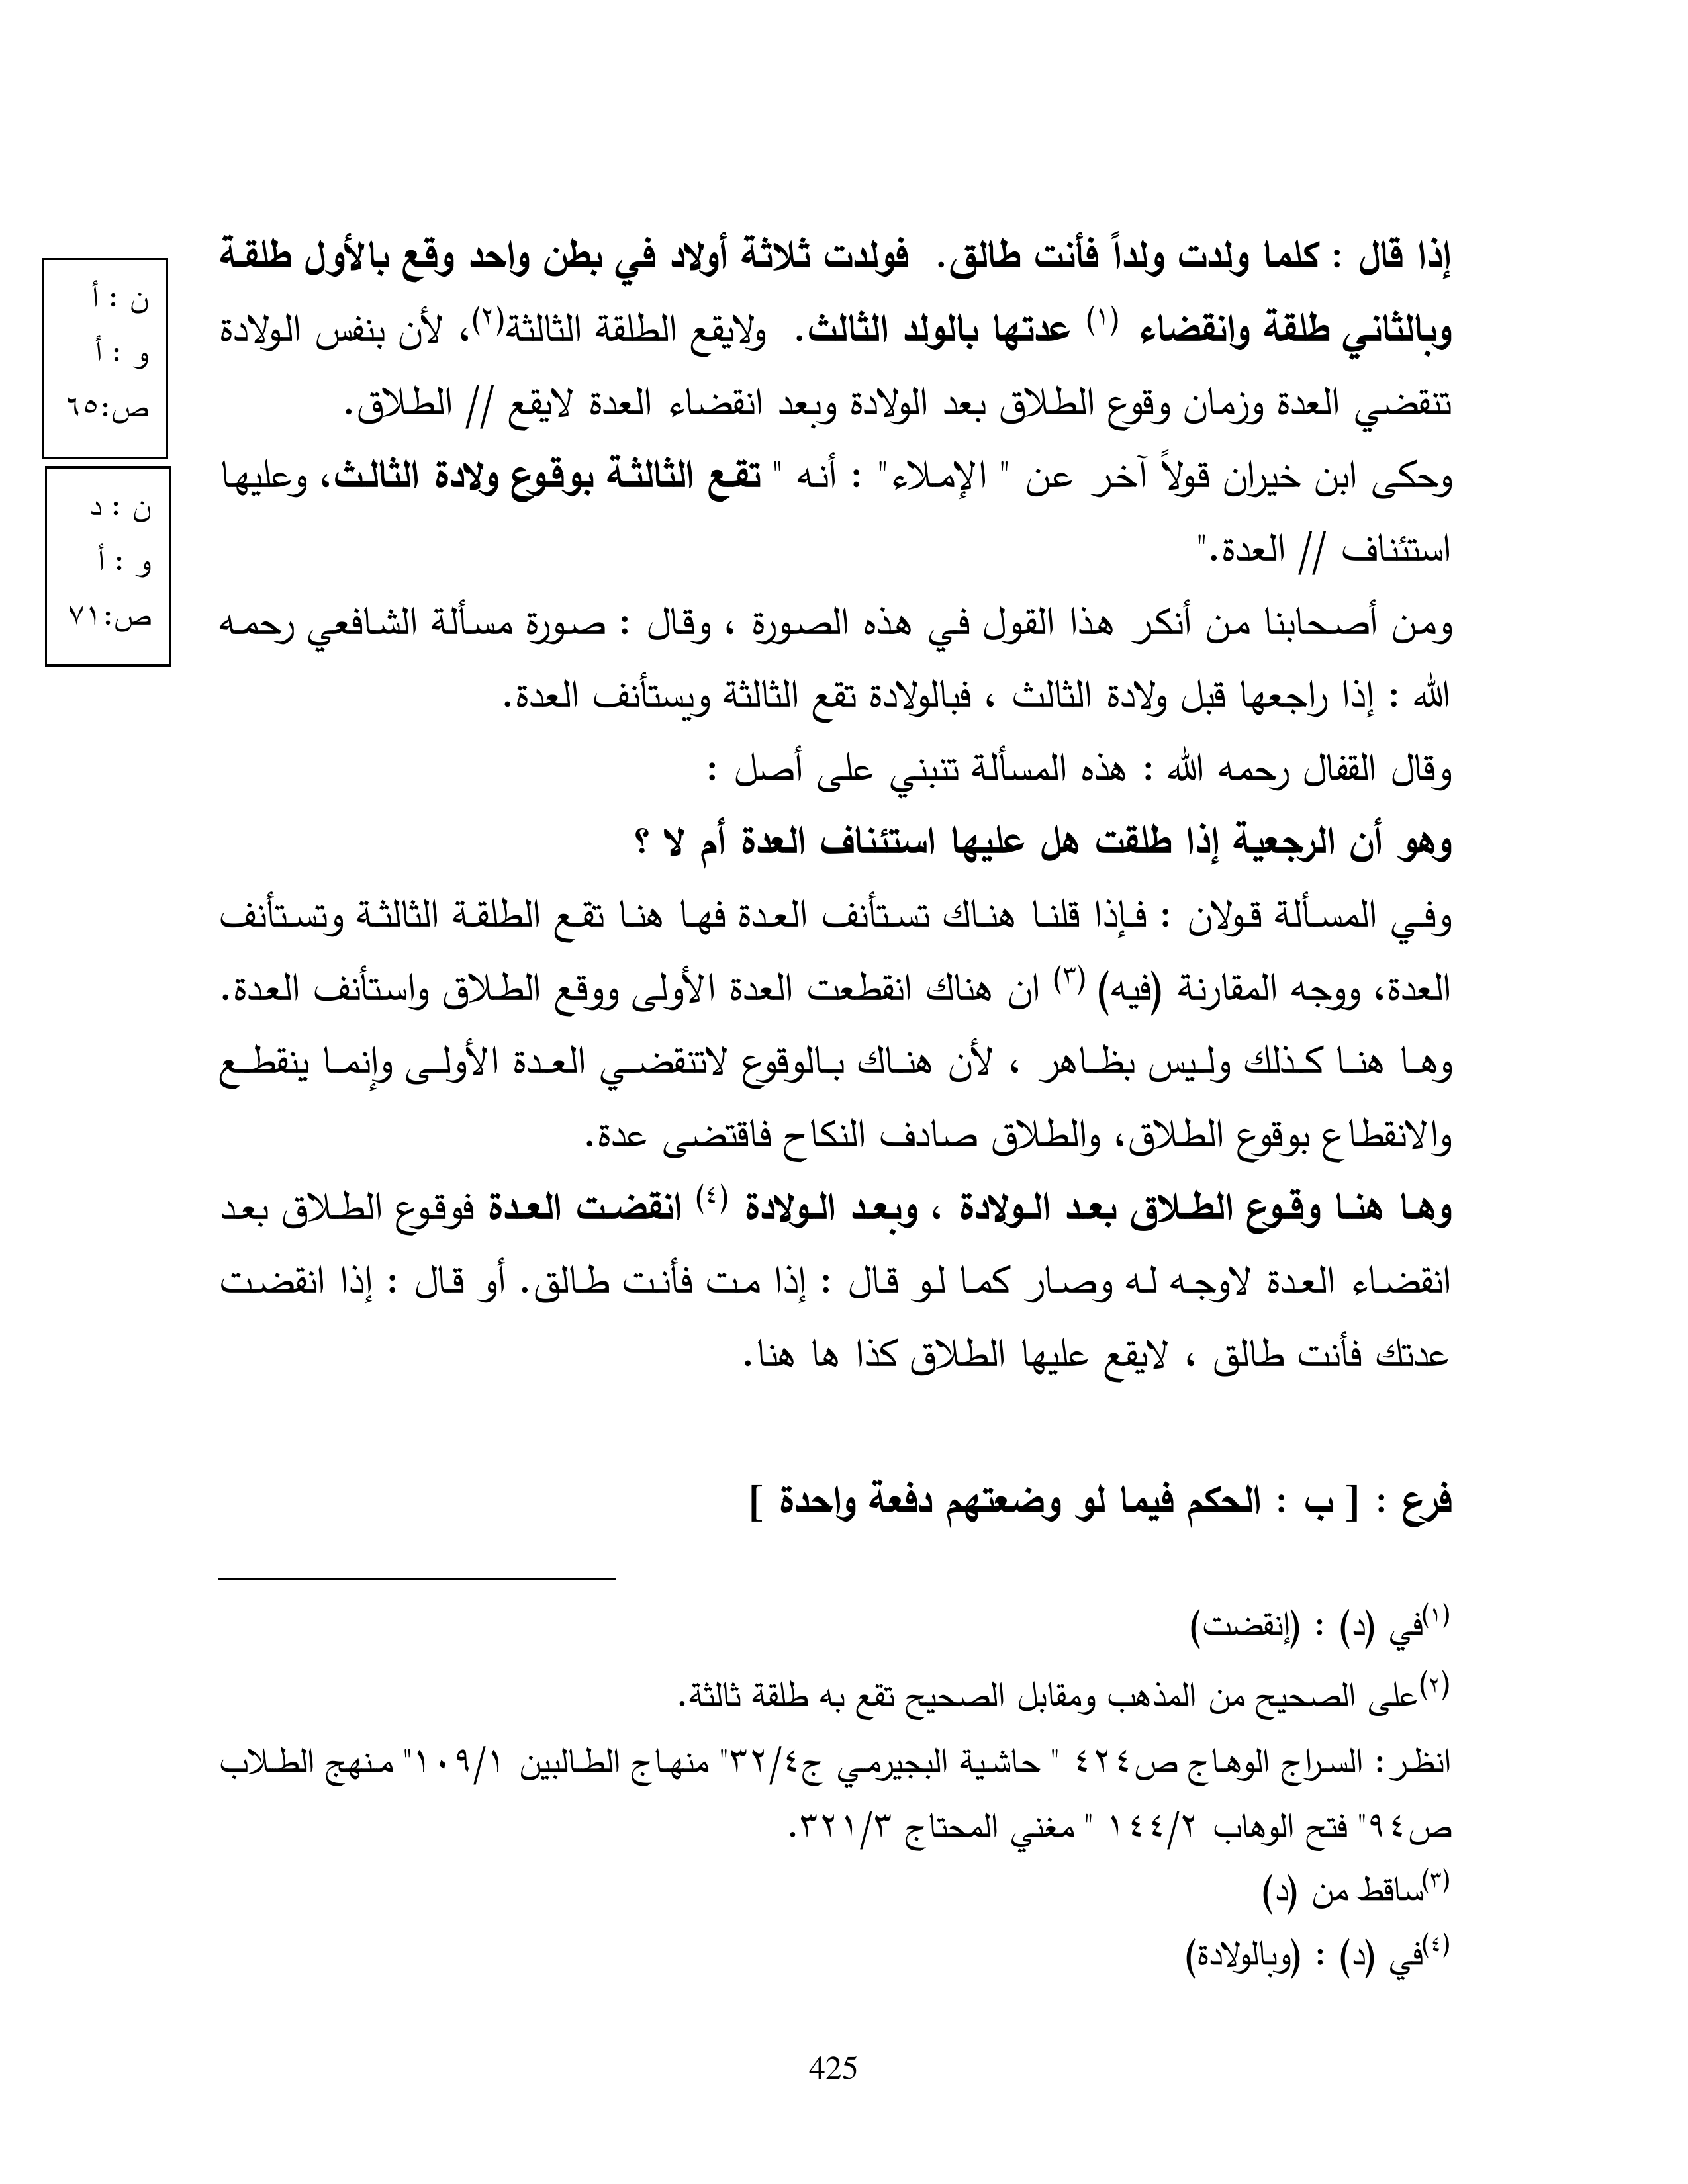 إذا قال : كلما ولدت ولداً فأنت طالق. فولدت ثلاثة أولاد في بطن واحد وقع بالأول طلقة
وبالثاني طلقة وانقضاء (١) عدتها بالولد الثالث. ولايقع الطلقة الثالثة(٢)، لأن بنفس الولادة
تنقضي العدة وزمان وقوع الطلاق بعد الولادة وبعد انقضاء العدة لايقع // الطلاق.
وحكى ابن خيران قولاً آخر عن " الإملاء" : أنه " تقع الثالثة بوقوع ولادة الثالث، وعليها
استئناف // العدة."
ومن أصحابنا من أنكر هذا القول في هذه الصورة ، وقال : صورة مسألة الشافعي رحمه
الله : إذا راجعها قبل ولادة الثالث ، فبالولادة تقع الثالثة ويستأنف العدة.
وقال القفال رحمه الله : هذه المسألة تنبني على أصل :
وهو أن الرجعية إذا طلقت هل عليها استئناف العدة أم لا ؟
وفي المسألة قولان : فإذا قلنا هناك تستأنف العدة فها هنا تقع الطلقة الثالثة وتستأنف
العدة، ووجه المقارنة (فيه) (٣) ان هناك انقطعت العدة الأولى ووقع الطلاق واستأنف العدة.
وها هنا كذلك وليس بظاهر ، لأن هناك بالوقوع لاتنقضي العدة الأولى وإنما ينقطع
والانقطاع بوقوع الطلاق، والطلاق صادف النكاح فاقتضى عدة.
وها هنا وقوع الطلاق بعد الولادة ، وبعد الولادة (٤) انقضت العدة فوقوع الطلاق بعد
انقضاء العدة لاوجه له وصار كما لو قال : إذا مت فأنت طالق. أو قال : إذا انقضت
عدتك فأنت طالق ، لايقع عليها الطلاق كذا ها هنا.
فرع : [ ب : الحكم فيما لو وضعتهم دفعة واحدة ]
(١)في (د) : (إنقضت)
(٢)على الصحيح من المذهب ومقابل الصحيح تقع به طلقة ثالثة.
انظر: السراج الوهاج ص٤٢٤ " حاشية البجيرمي ج٣٢/٤" منهاج الطالبين ١٠٩/١" منهج الطلاب
ص٩٤" فتح الوهاب ١٤٤/٢ " مغني المحتاج ٣٢١/٣.
(٣)ساقط من (د)
(٤)في (د) : (وبالولادة)
425
ن : أ
و : أ
ص:٦٥
ن : د
و : أ
ص:٧١